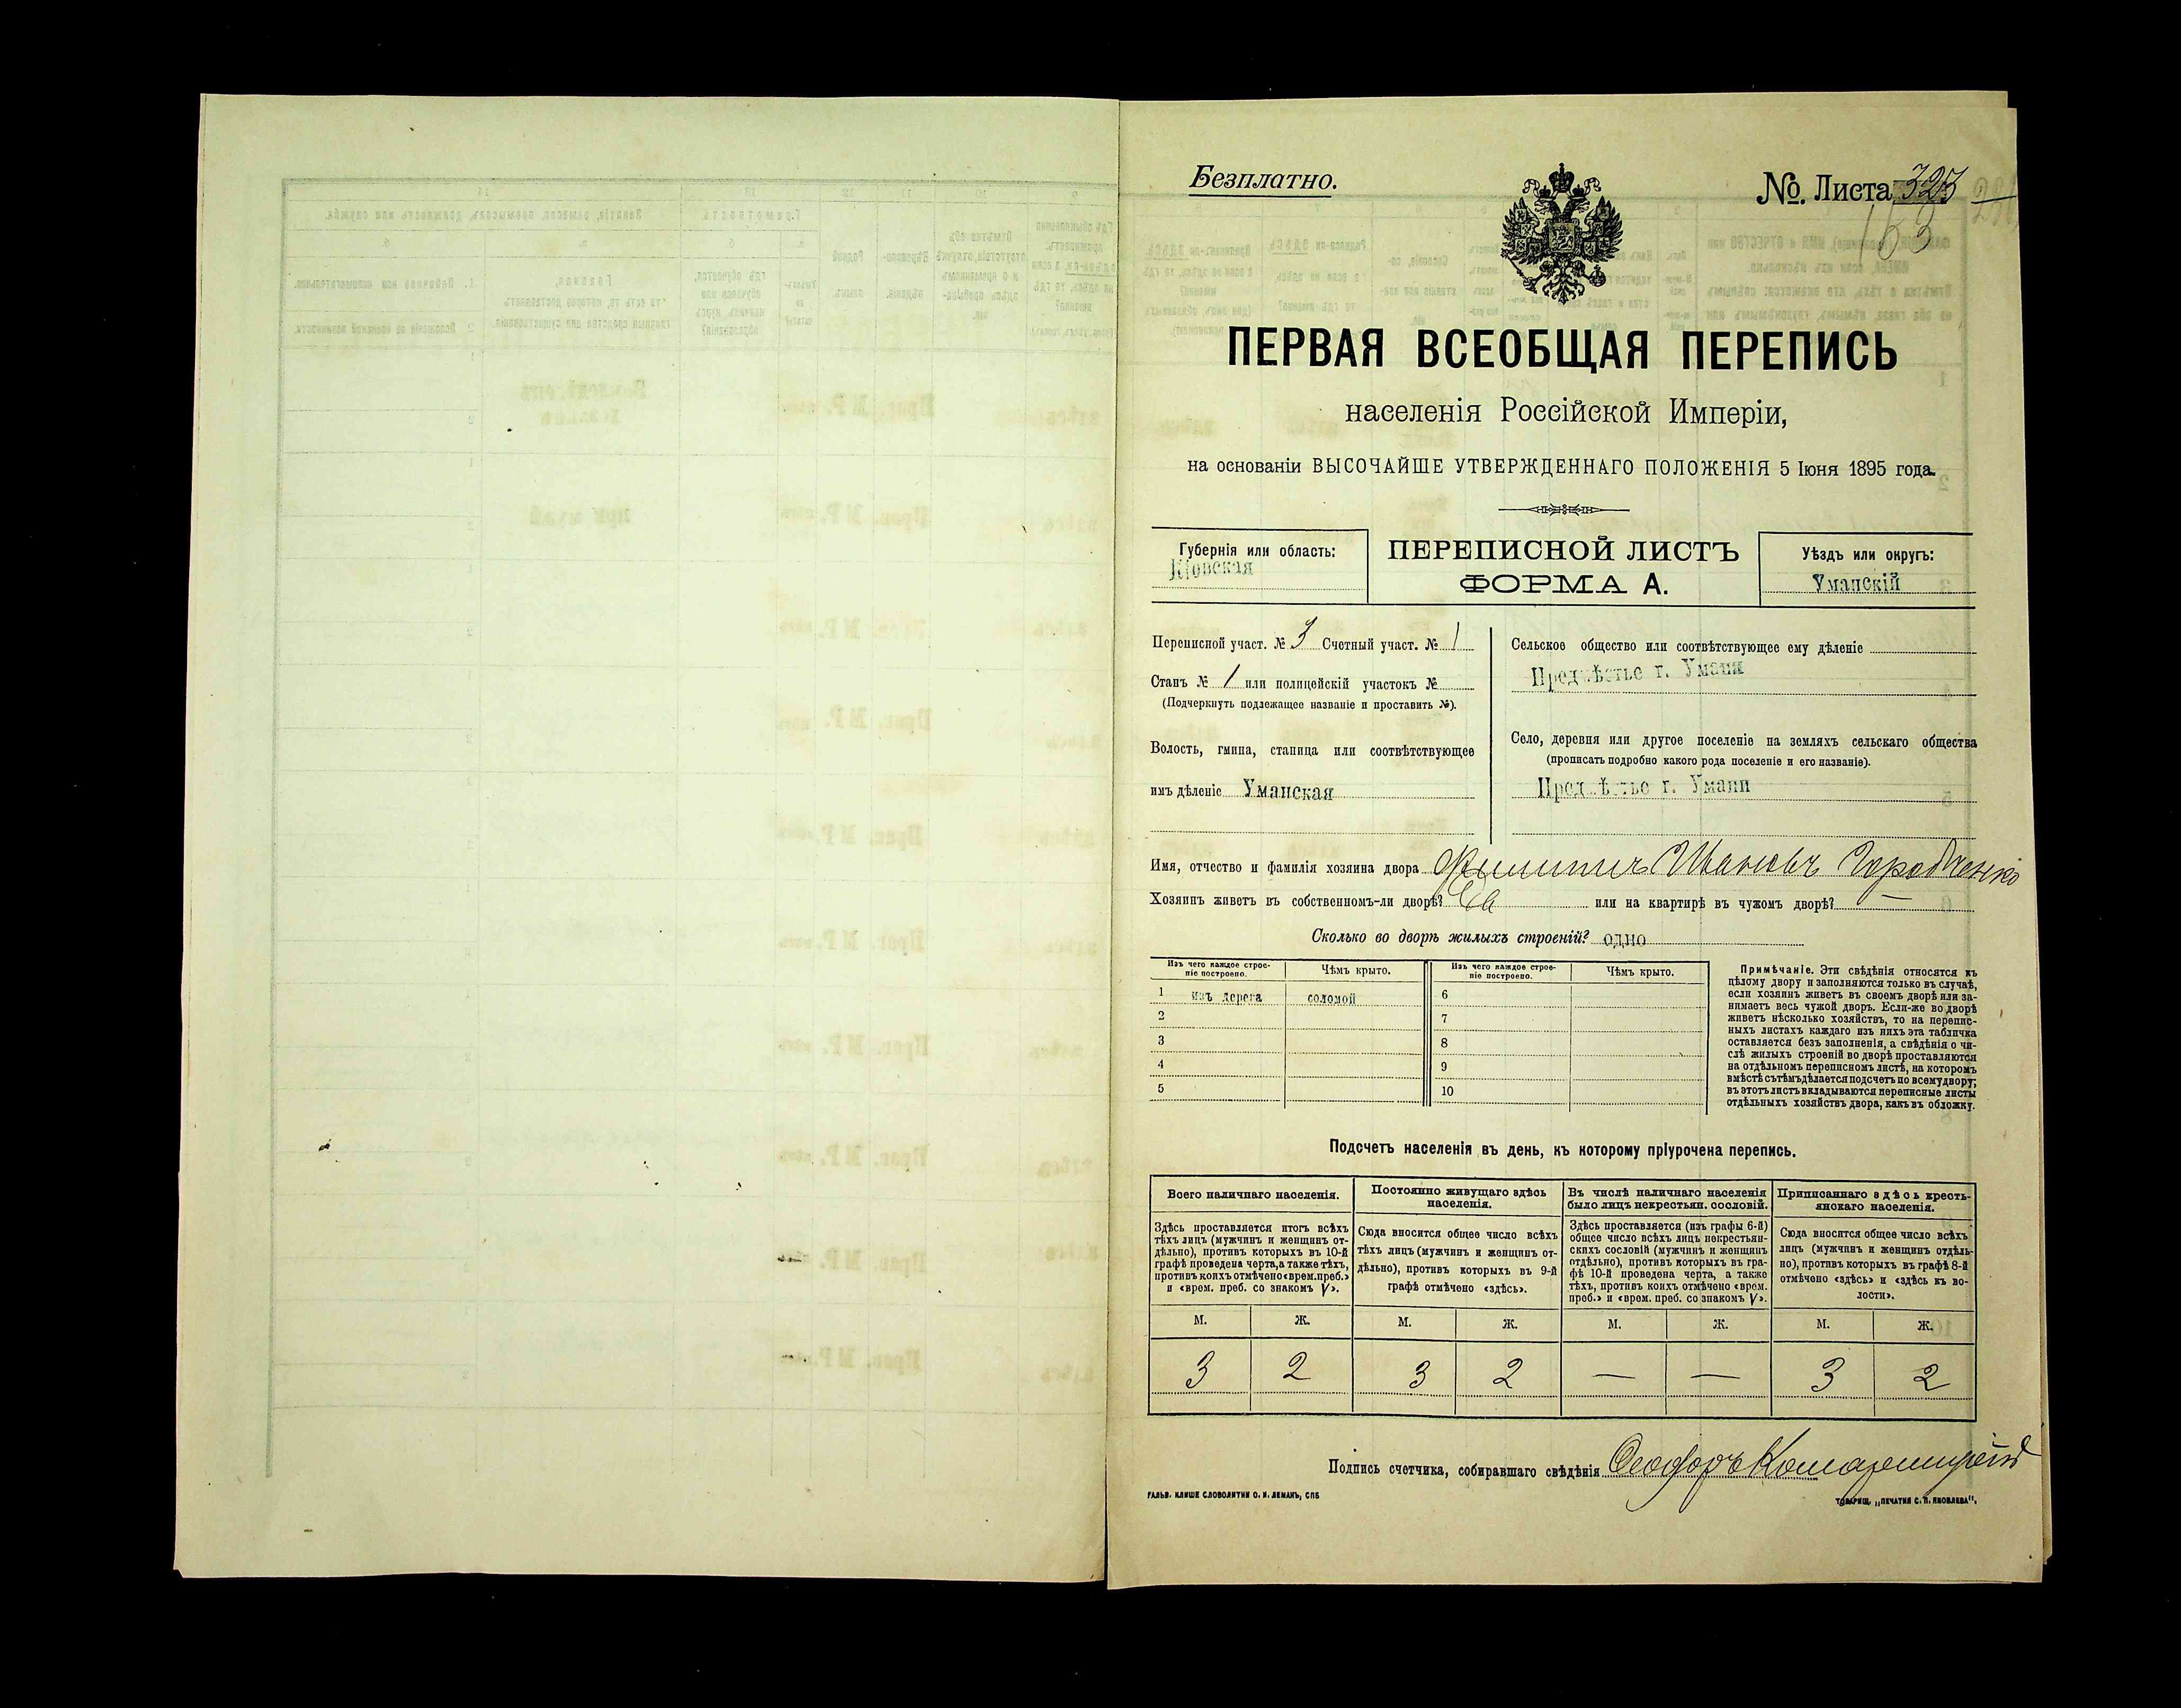 Безплатно.
№. Листа 323
163
ПЕРВАЯ ВСЕОБЩАЯ ПЕРЕПИСЬ
населенія Россійской Имперіи,
на основаніи ВЫСОЧАЙШЕ УТВЕРЖДЕННАГО ПОЛОЖЕНІЯ 5 Іюня 1895 года.
Губернія или область:
Кіевская
ПЕРЕПИСНОЙ ЛИСТЪ
ФОРМА А.
Уѣздъ или округъ:
Уманскій
Переписной участ. № 3 Счетный участ. № 1
Станъ № 1 или полицейскій участокъ №
(Подчеркнуть подлежащее названіе и проставить №).
Волость, гмина, станица или соотвѣтствующее
имъ дѣленіе Уманская
Сельское общество или соотвѣтствующее ему дѣленіе
Предмѣстье г. Умани
Село, деревня или другое поселеніе на земляхъ сельскаго общества
(прописать подробно какого рода поселеніе и его названіе).
Предмѣстье г. Умани
Имя, отчество и фамилія хозяина двора Филиппъ Ивановъ
Хозяинъ живетъ въ собственномъ-ли дворѣ? или на квартирѣ въ чужомъ дворѣ? —
Сколько во дворѣ жилыхъ строеній? одно
Изъ чего каждое строе-
ніе построено.
Чѣмъ крыто.
Изъ чего каждое строе-
ніе построено.
Чѣмъ крыто.
1 изъ дерева соломой 6
2 7
3 8
4 9
5 10
Примѣчаніе. Эти свѣдѣнія относятся къ
цѣлому двору и заполняются только въ случаѣ,
если хозяинъ живетъ въ своемъ дворѣ или за-
нимаетъ весь чужой дворъ. Если-же во дворѣ
живетъ нѣсколько хозяйствъ, то на перепис-
ныхъ листахъ каждаго изъ нихъ эта табличка
оставляется безъ заполненія, а свѣдѣнія о чи-
слѣ жилыхъ строеній во дворѣ проставляются
на отдѣльномъ переписномъ листѣ, на которомъ
вмѣстѣ съ тѣмъ дѣлается подсчетъ по всему двору;
въ этотъ листъ вкладываются переписные листы
отдѣльныхъ хозяйствъ двора, какъ въ обложку.
Подсчетъ населенія въ день, къ которому пріурочена перепись.
Всего наличнаго населенія.
Здѣсь проставляется итогъ всѣхъ
тѣхъ лицъ (мужчинъ и женщинъ от-
дѣльно), противъ которыхъ въ 10-й
графѣ проведена черта, а также тѣхъ,
противъ коихъ отмѣчено «врем. преб.»
и «врем. преб. со знакомъ V».
Постоянно живущаго здѣсь
населенія.
Сюда вносится общее число всѣхъ
тѣхъ лицъ (мужчинъ и женщинъ от-
дѣльно), противъ которыхъ въ 9-й
графѣ отмѣчено «здѣсь».
Въ числѣ наличнаго населенія
было лицъ некрестьян. сословій.
Здѣсь проставляется (изъ графы 6-й)
общее число всѣхъ лицъ некрестьян-
скихъ сословій (мужчинъ и женщинъ
отдѣльно), противъ которыхъ въ гра-
фѣ 10-й проведена черта, а также
тѣхъ, противъ коихъ отмѣчено «врем.
преб.» и «врем. преб. со знакомъ V».
Приписаннаго здѣсь кресть-
янскаго населенія.
Сюда вносится общее число всѣхъ
лицъ (мужчинъ и женщинъ отдѣль-
но), противъ которыхъ въ графѣ 8-й
отмѣчено «здѣсь» и «здѣсь къ во-
лости».
М. Ж. М. Ж. М. Ж. М. Ж.
3 2 3 2 — — 3 2
Подпись счетчика, собиравшаго свѣдѣнія Ѳеодоръ
ГАЛЬВ. КЛИШЕ СЛОВОЛИТНИ О. И. ЛЕМАНЪ, СПБ
ТОВАРИЩ. „ПЕЧАТНЯ С. П. ЯКОВЛЕВА".